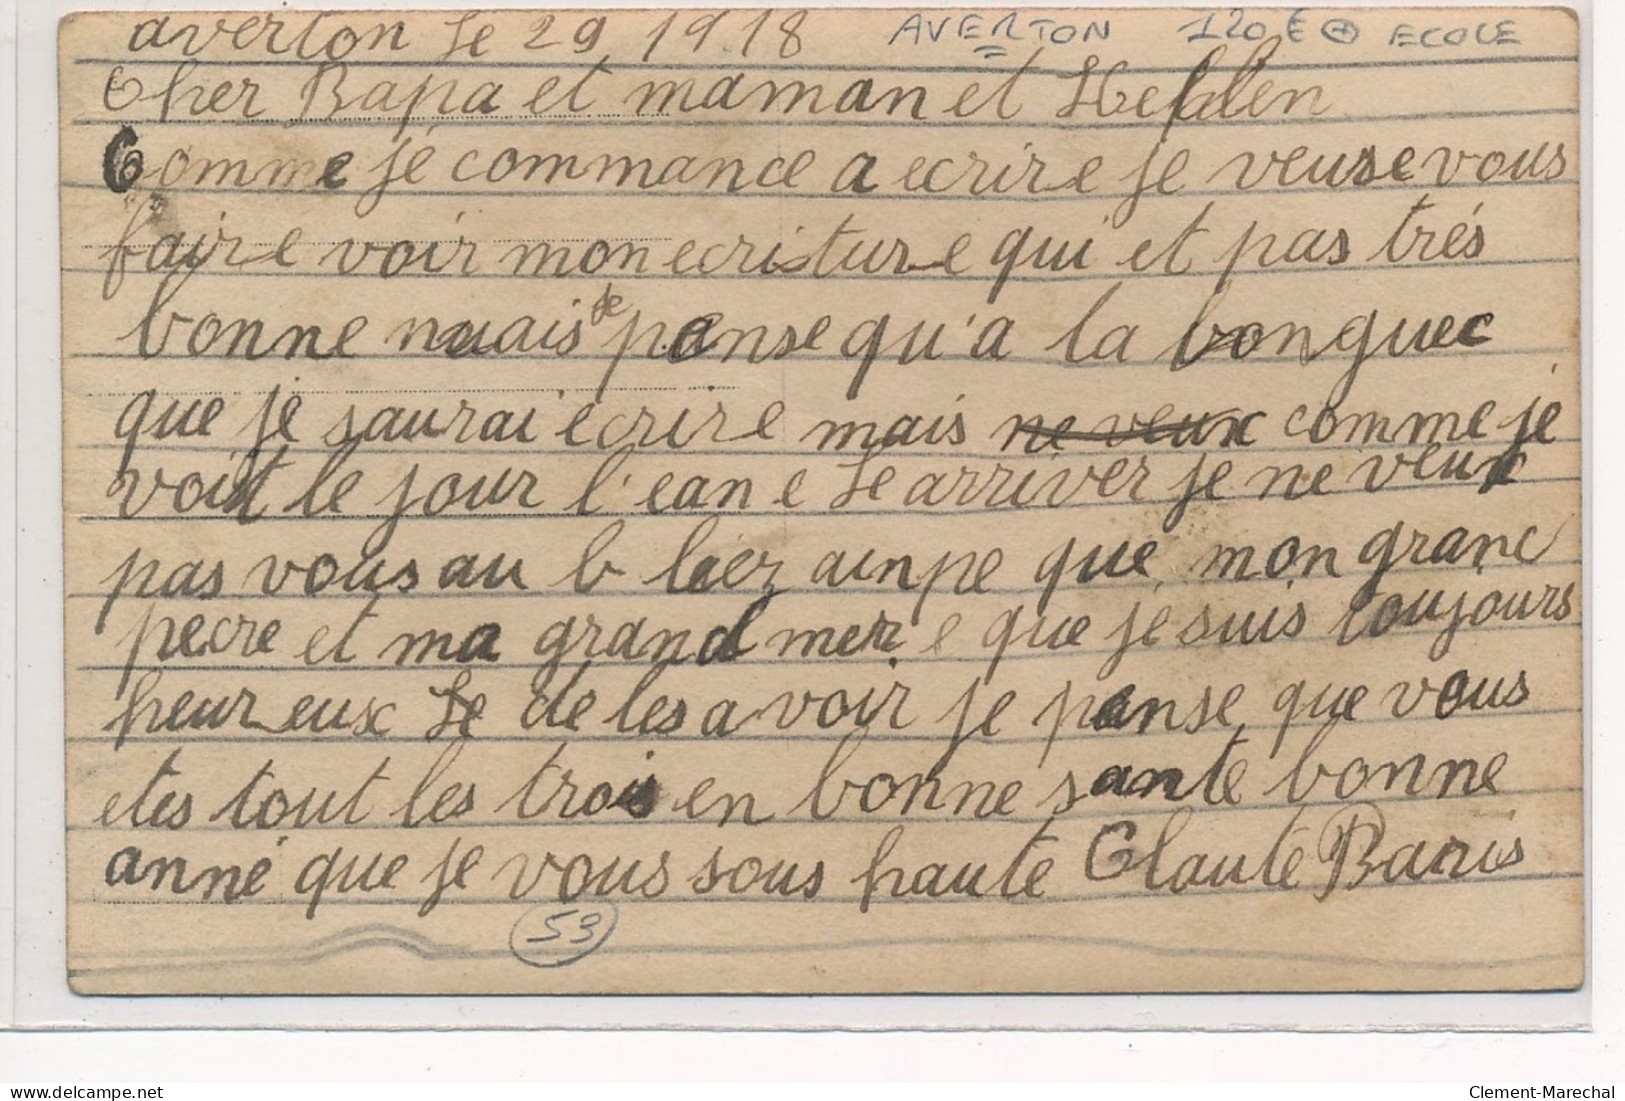 averton Le 29 1918 AVERTON 120 € ECOLE
Cher Bapa et maman et Hellen
Comme je commance a ecrire je veuse vous
faire voir mon ecriture qui et pas trés
bonne maais je panse qu'a la longuec
que je saurai ecrire mais ne veux comme je
voit le jour l'eane Le arriver je ne veux
pas vous au b liez ainpe que mon granc
pecre et ma grand mere que je suis toujours
heureux Le de les avoir je panse que vous
etes tout les trois en bonne sante bonne
anné que je vous sous haute Claute Baris
53
Clement-Marechal
delcampe.net